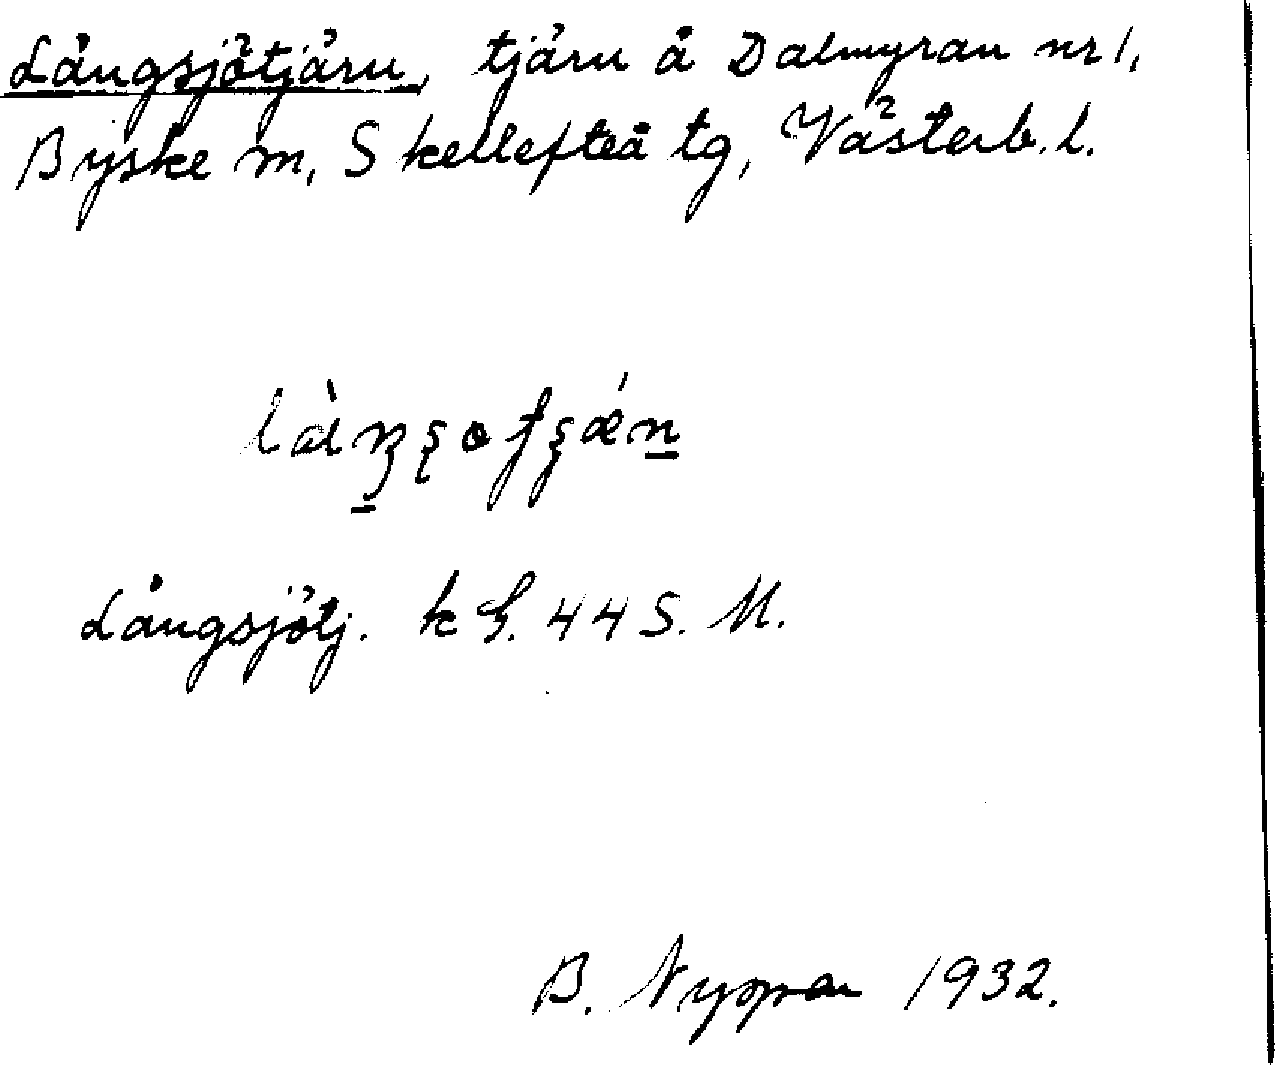 Långsjötjärn, tjärn å Dalmyran nr 1,
Byske sn, Skellefteå tg, Västerb. l.
Långsjötj. k bl. 44 S. M.
B. Nyman 1932.